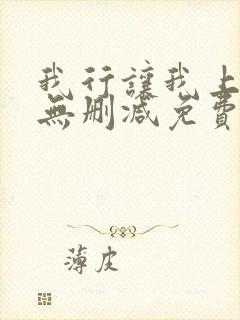 我行讓我上
無刪減免費
薄皮